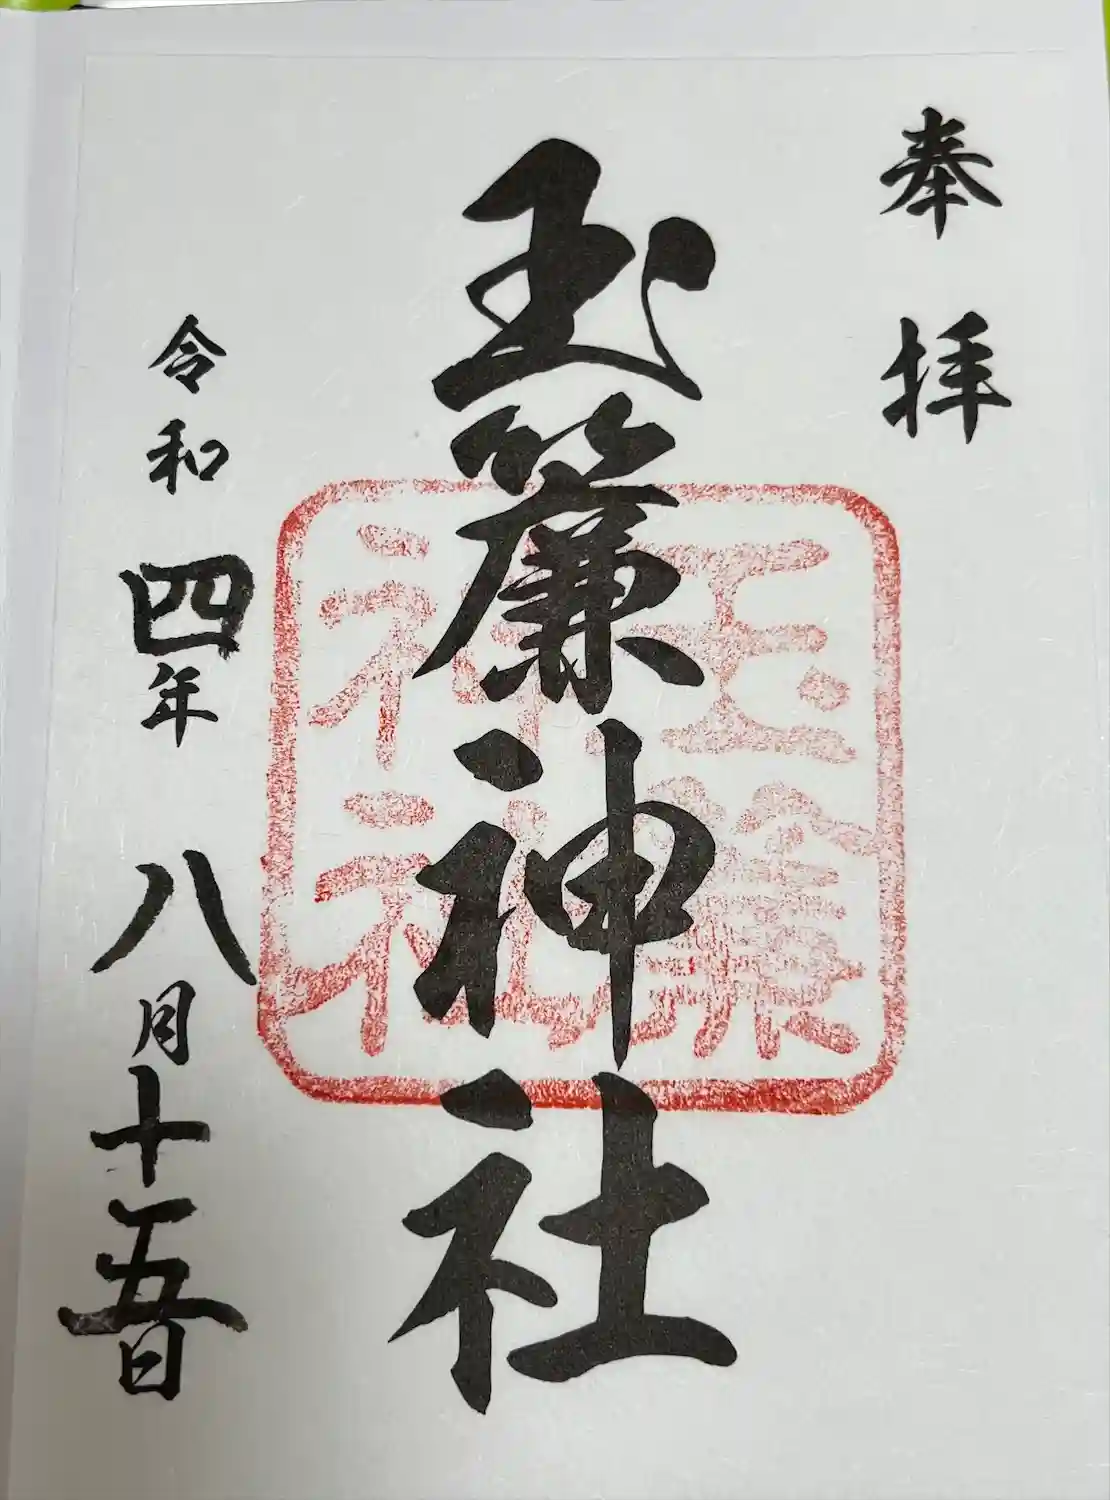 奉拝
玉簾神社
玉簾神社
令和四年八月十五日